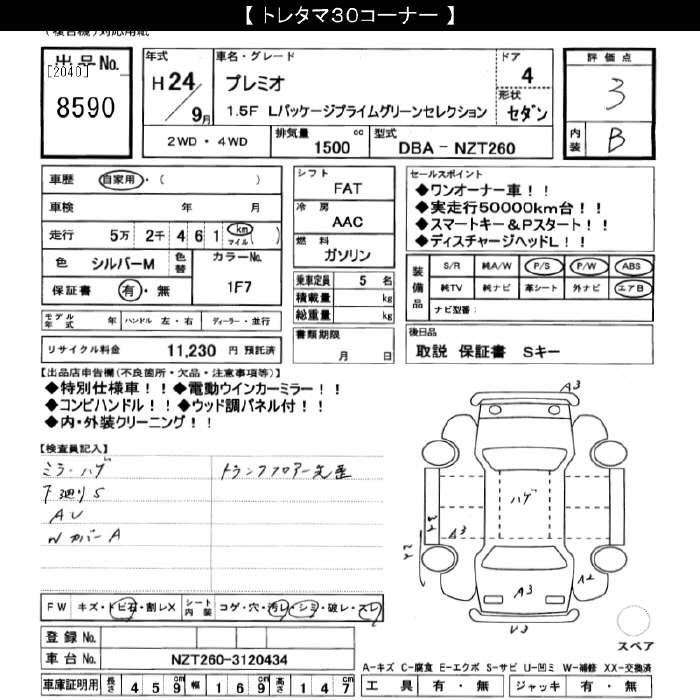 【 トレタマ30コーナー 】
(複合機)対応用紙
出品No.
[2040]
8590
年式
H24/9月
車名・グレード
プレミオ
1.5F Lパッケージプライムグリーンセレクション
ドア
4
形状
セダン
評価点
3
内装
B
2WD ・ 4WD
排気量
1500 cc
型式
DBA - NZT260
車歴 自家用・( )
車検 年 月
走行 5万 2千 4 6 1 km マイル( )
色 シルバーM 色替
カラーNo.
1F7
保証書 有・無
モデル年式 年 ハンドル 左・右 ディーラー・並行
リサイクル料金 11,230 円 預託済
シフト
FAT
冷房
AAC
燃料
ガソリン
乗車定員 5 名
積載量 kg
総重量 kg
書類期限
月 日
セールスポイント
◆ワンオーナー車!!
◆実走行50000km台!!
◆スマートキー&Pスタート!!
◆ディスチャージヘッドL!!
装備品
S/R 純A/W P/S P/W ABS
純TV 純ナビ 革シート 外ナビ エアB
ナビ型番:
後日品
取説 保証書 Sキー
【出品店申告欄(不良箇所・欠品・注意事項等)】
◆特別仕様車!!◆電動ウインカーミラー!!
◆コンビハンドル!!◆ウッド調パネル付!!
◆内・外装クリーニング!!
【検査員記入】
ミラーハゲ
下廻りS
AU
Wカバー A
トランクフロアー
A3
ハゲ
A3
A3
A2
U3
FW キズ・トビ石・割レX シート内装 コゲ・穴・汚レ・シミ・破レ・スレ
登録No.
車台No. NZT260-3120434
車庫証明用 長さ 4 5 9 cm 幅 1 6 9 cm 高さ 1 4 7 cm
スペア
A-キズ C-腐食 E-エクボ S-サビ U-凹ミ W-補修 XX-交換済
工具 有・無 ジャッキ 有・無